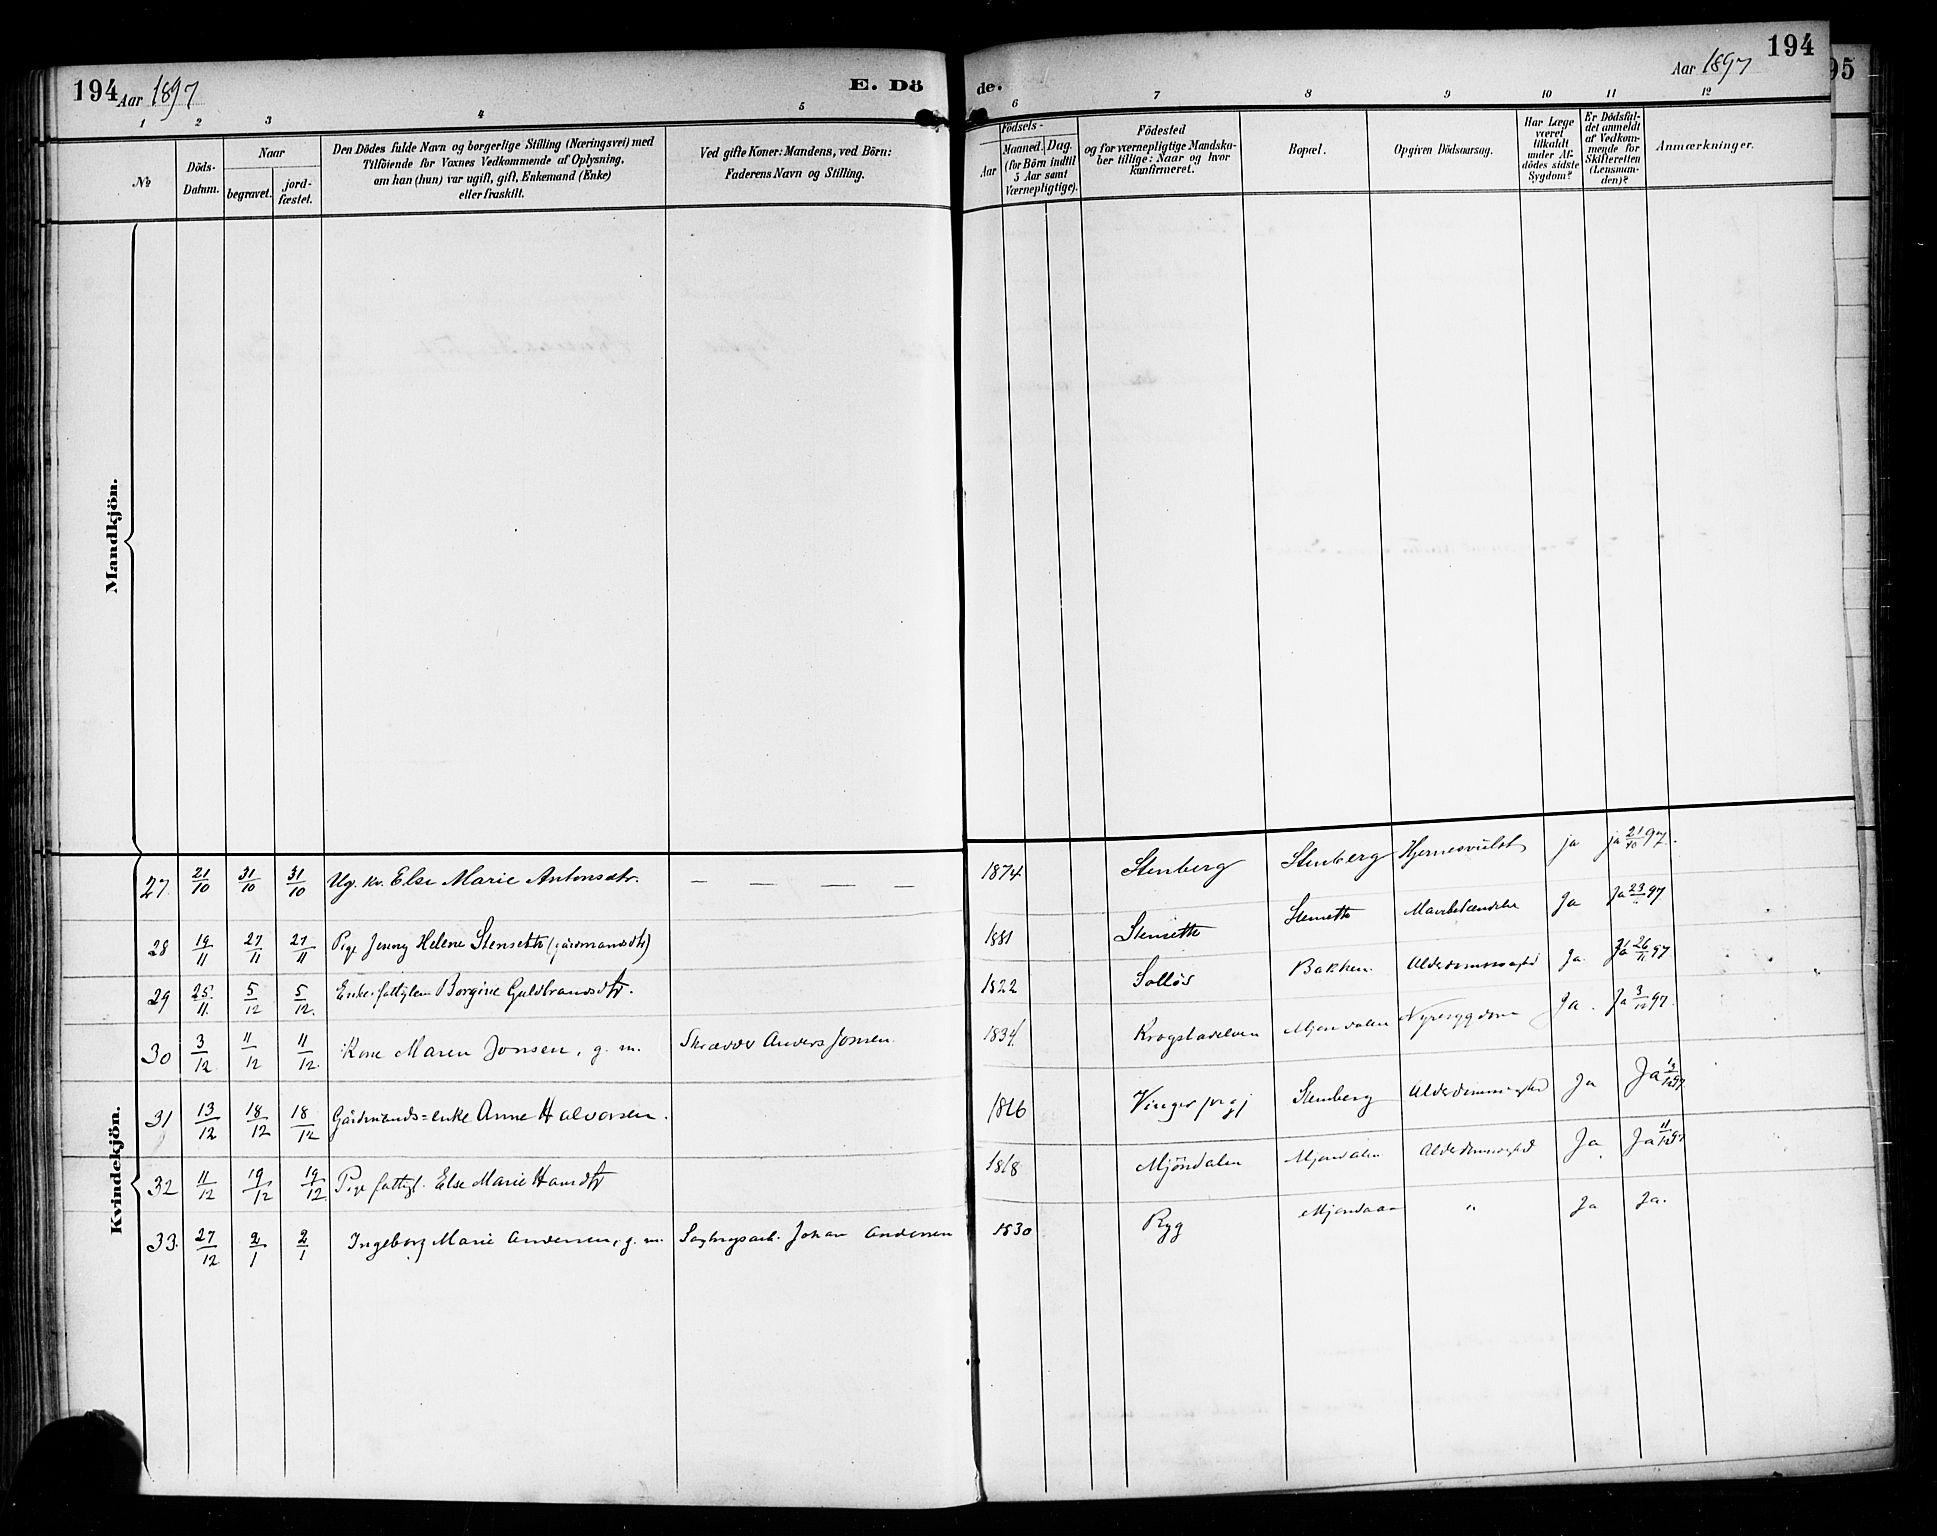 194 Aar 1897
E. Dö
de.
Aar 1897 194
95
1 2 3 4 5
6 7 8 9 10 11 12
№
Döds-Datum.
Naar
begravet.
jord-fæstet.
Den Dödes fulde Navn og borgerlige Stilling (Næringsvei) med
Tilföiende for Voxnes Vedkommende af Oplysning,
om han (hun) var ugift, gift, Enkemand (Enke)
eller fraskilt.
Ved gifte Koner: Mandens, ved Börn:
Faderens Navn og Stilling.
Födsels-
Aar
Maaned. Dag.
(for Börn indtil
5 Aar samt
Værnepligtige).
Födested
og for værnepligtige Mandska-
ber tillige: Naar og hvor
konfirmeret.
Bopæl.
Opgiven Dödsaarsag.
Har Læge
været
tilkaldt
under Af-
dödes sidste
Sygdom?
Er Dödsfal-
det anmeldt
af Vedkom-
mende for
Skifteretten
(Lensman-
den)?
Anmærkninger.
Mandkjön.
Kvindekjön.
27. 21/10 31/10 31/10 Ug. kv. Else Marie Antonsdtr. — — — — 1874 Stenberg Stenberg Hjernesvulst ja ja 21/10 97.
28 19/11 27/11 27/11 Pige Jenny Helene Stensetth (gårdmandsdtr) 1881 Stensetth Stensetth Ja Ja 23/11 97
29 25/11 5/12 5/12 Enke fattiglem Borgine Guldbrandsdtr. 1822 Solløs Bakken. Alderdomssvaghed Ja Ja 26/11 97
30 3/12 11/12 11/12 Kone Maren Jonsen, g. m. Skrædder Anders Jonsen. 1834 Krogstadelven Mjøndalen Nyresygdom Ja. Ja 3/12 97.
31 13/12 18/12 18/12 Gårdmands=enke Anne Halvorsen. 1816 Vinger prgj Stenberg Ja Ja 13/12 97
32 11/12 19/12 19/12 Pige fattigl. Else Marie Hansdtr 1818 Mjöndalen Mjøndalen Alderdomssvaghed Ja Ja 11/12 97
33. 27/12 2/1 2/1 Ingeborg Marie Andersen, g. m. Sagbrugsarb. Johan Andersen 1830 Ryg " Ja Ja.